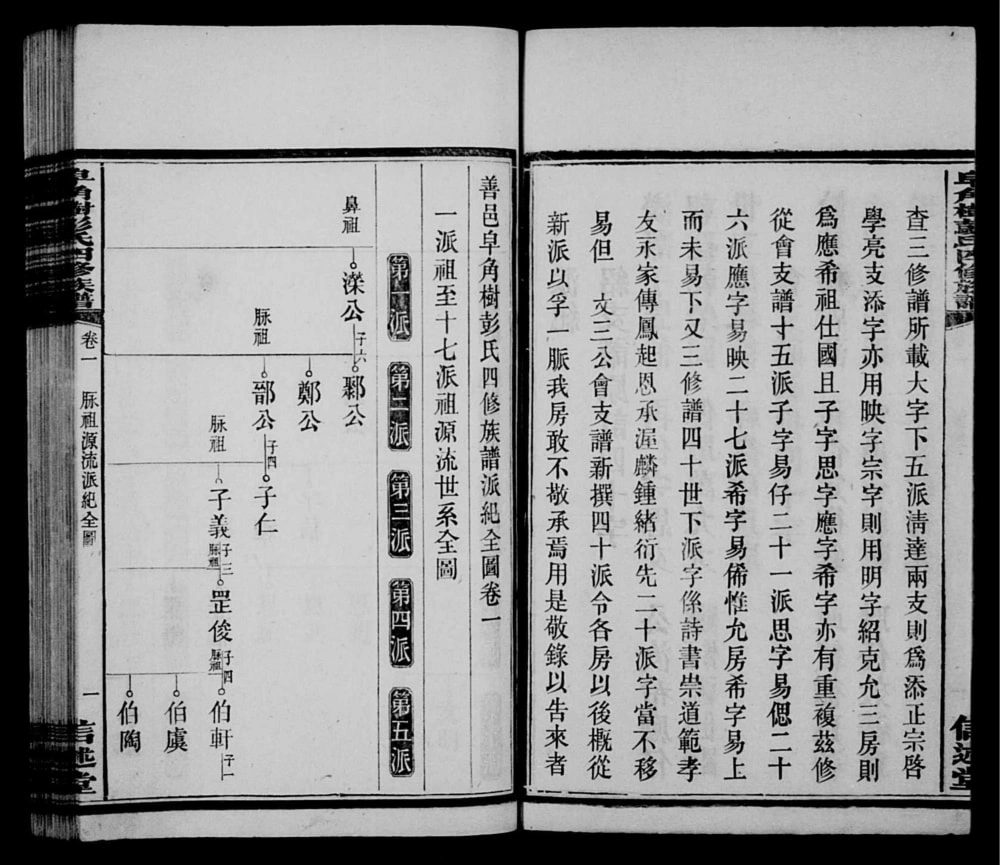 查三修譜所載大字下五派淸達兩支則爲添正宗啓
學亮支添字亦用映字宗字則用明字紹克允三房則
爲應希祖仕國且子字思字應字希字亦有重複茲修
從會支譜十五派子字易仔二十一派思字易偲二十
六派應字易映二十七派希字易俙惟允房希字易上
而未易下又三修譜四十世下派字係詩書崇道範孝
友永家傳鳳起恩承渥麟鍾緒衍先二十派字當不移
易但 文三公會支譜新撰四十派令各房以後概從
新派以孚一脈我房敢不敬承焉用是敬錄以告來者
信述堂
善邑皁角樹彭氏四修族譜派紀全圖卷一
一派祖至十七派祖源流世系全圖
第一派 第二派 第三派 第四派 第五派
鼻祖
濚公 子六
鄹公
鄭公
脉祖
郚公 子四
子仁
脉祖
子義 子三
脈祖
罡俊 子四
脈祖
伯軒 子一
伯虞
伯陶
皁角樹彭氏四修族譜
卷一
脉祖源流派紀全圖
一
信述堂